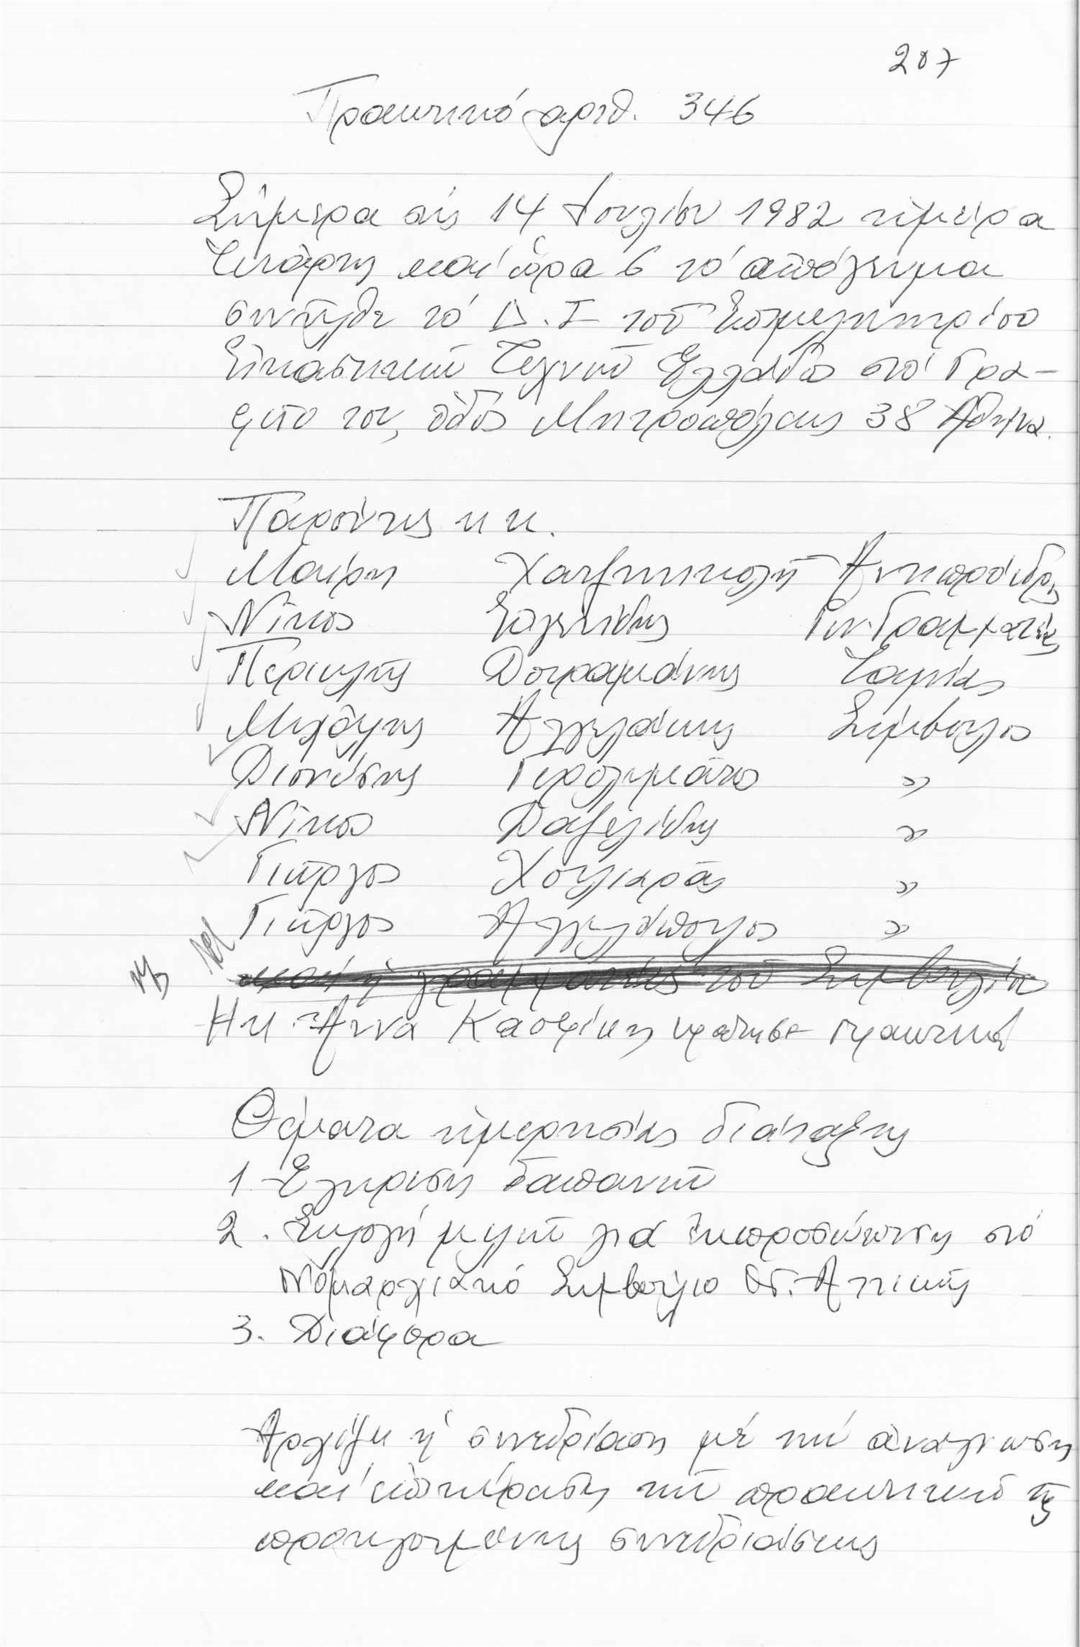 207
Πρακτικό αριθ. 346
Σήμερα στίς 14 Ἰουλίου 1982 ἡμέρα
Τετάρτη καί ὥρα 6 τό ἀπόγευμα
συνῆλθε τό Δ.Σ τοῦ Ἐπιμελητηρίου
Εἰκαστικῶν Τεχνῶν Ἑλλάδος στό Γρα-
φεῖο του, ὁδός Μητροπόλεως 38 Ἀθήνα.
Παρόντες κ κ.
Μαίρη Χατζηνικολῆ Ἀντιπρόεδρος
Νίκος Γεν. Γραμματέας
Περικλῆς Δουραμάνης Ταμίας
Μιχάλης Ἀγγελάκης Σύμβουλος
Διονύσης Γερολυμάτος "
Νίκος Δαβελίδης "
Γιῶργος Χουλιαρᾶς "
Γιῶργος Ἀγγελόπουλος "
καί ἡ γραμματέας τοῦ Συμβουλίου
Η κ. Ἄννα Κασφίκη κράτησε πρακτικά
Θέματα ἡμερησίας διάταξης
1 Ἔγκριση δαπανῶν
2. Ἐκλογή μελῶν γιά ἐκπροσώπηση στό
Νομαρχιακό Συμβούλιο Ἀττικῆς
3. Διάφορα
Ἀρχίζει ἡ συνεδρίαση μέ τήν ἀνάγνωση
καί ἐπικύρωση τῶν πρακτικῶν τῆς
προηγουμένης συνεδριάσεως